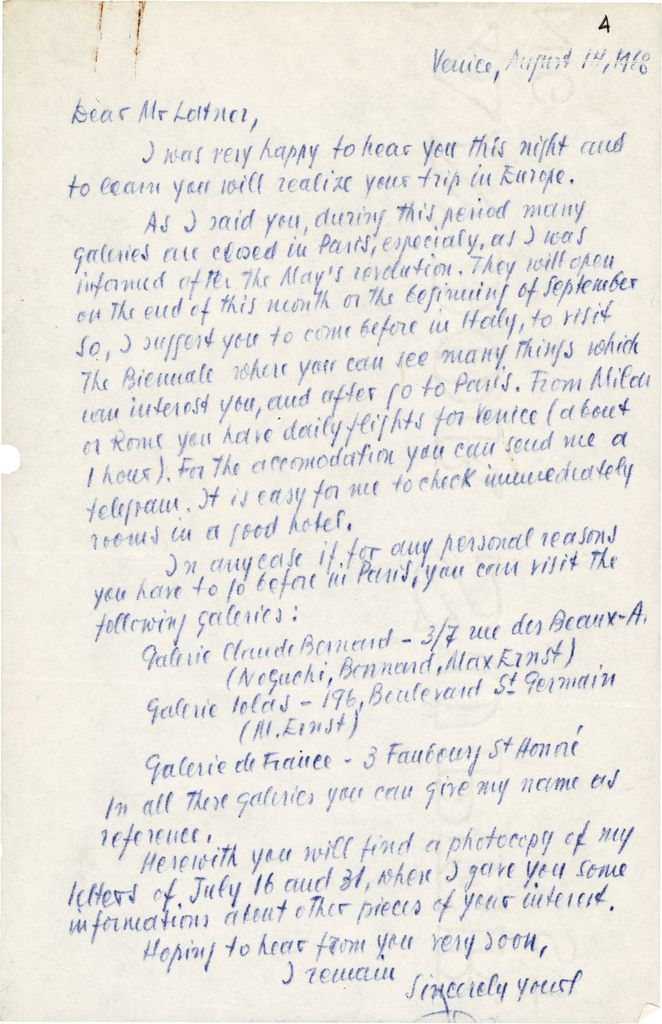 4
Venice, August 14, 1968
Dear Mr Lattner,
I was very happy to hear you this night and
to learn you will realize your trip in Europe.
As I said you, during this period many
galeries are closed in Paris, especialy, as I was
informed after the May's revolution. They will open
on the end of this month or the beginning of September
So, I suggest you to come before in Italy, to visit
the Biennale where you can see many things which
can interest you, and after go to Paris. From Milan
or Rome you have daily flights for Venice (about
1 hour). For the accomodation you can send me a
telegram. It is easy for me to check immediately
rooms in a good hotel.
In any case if for any personal reasons
you have to go before in Paris, you can visit the
following galeries:
Galerie Claude Bernard - 3/7 rue des Beaux-A.
(Noguchi, Bonnard, Max Ernst)
Galerie Iolas - 196, Boulevard St Germain
(M. Ernst)
Galerie de France - 3 Faubourg St Honoré
In all these galeries you can give my name as
reference.
Herewith you will find a photocopy of my
letters of July 16 and 31, when I gave you some
informations about other pieces of your interest.
Hoping to hear from you very soon,
I remain
Sincerely yours